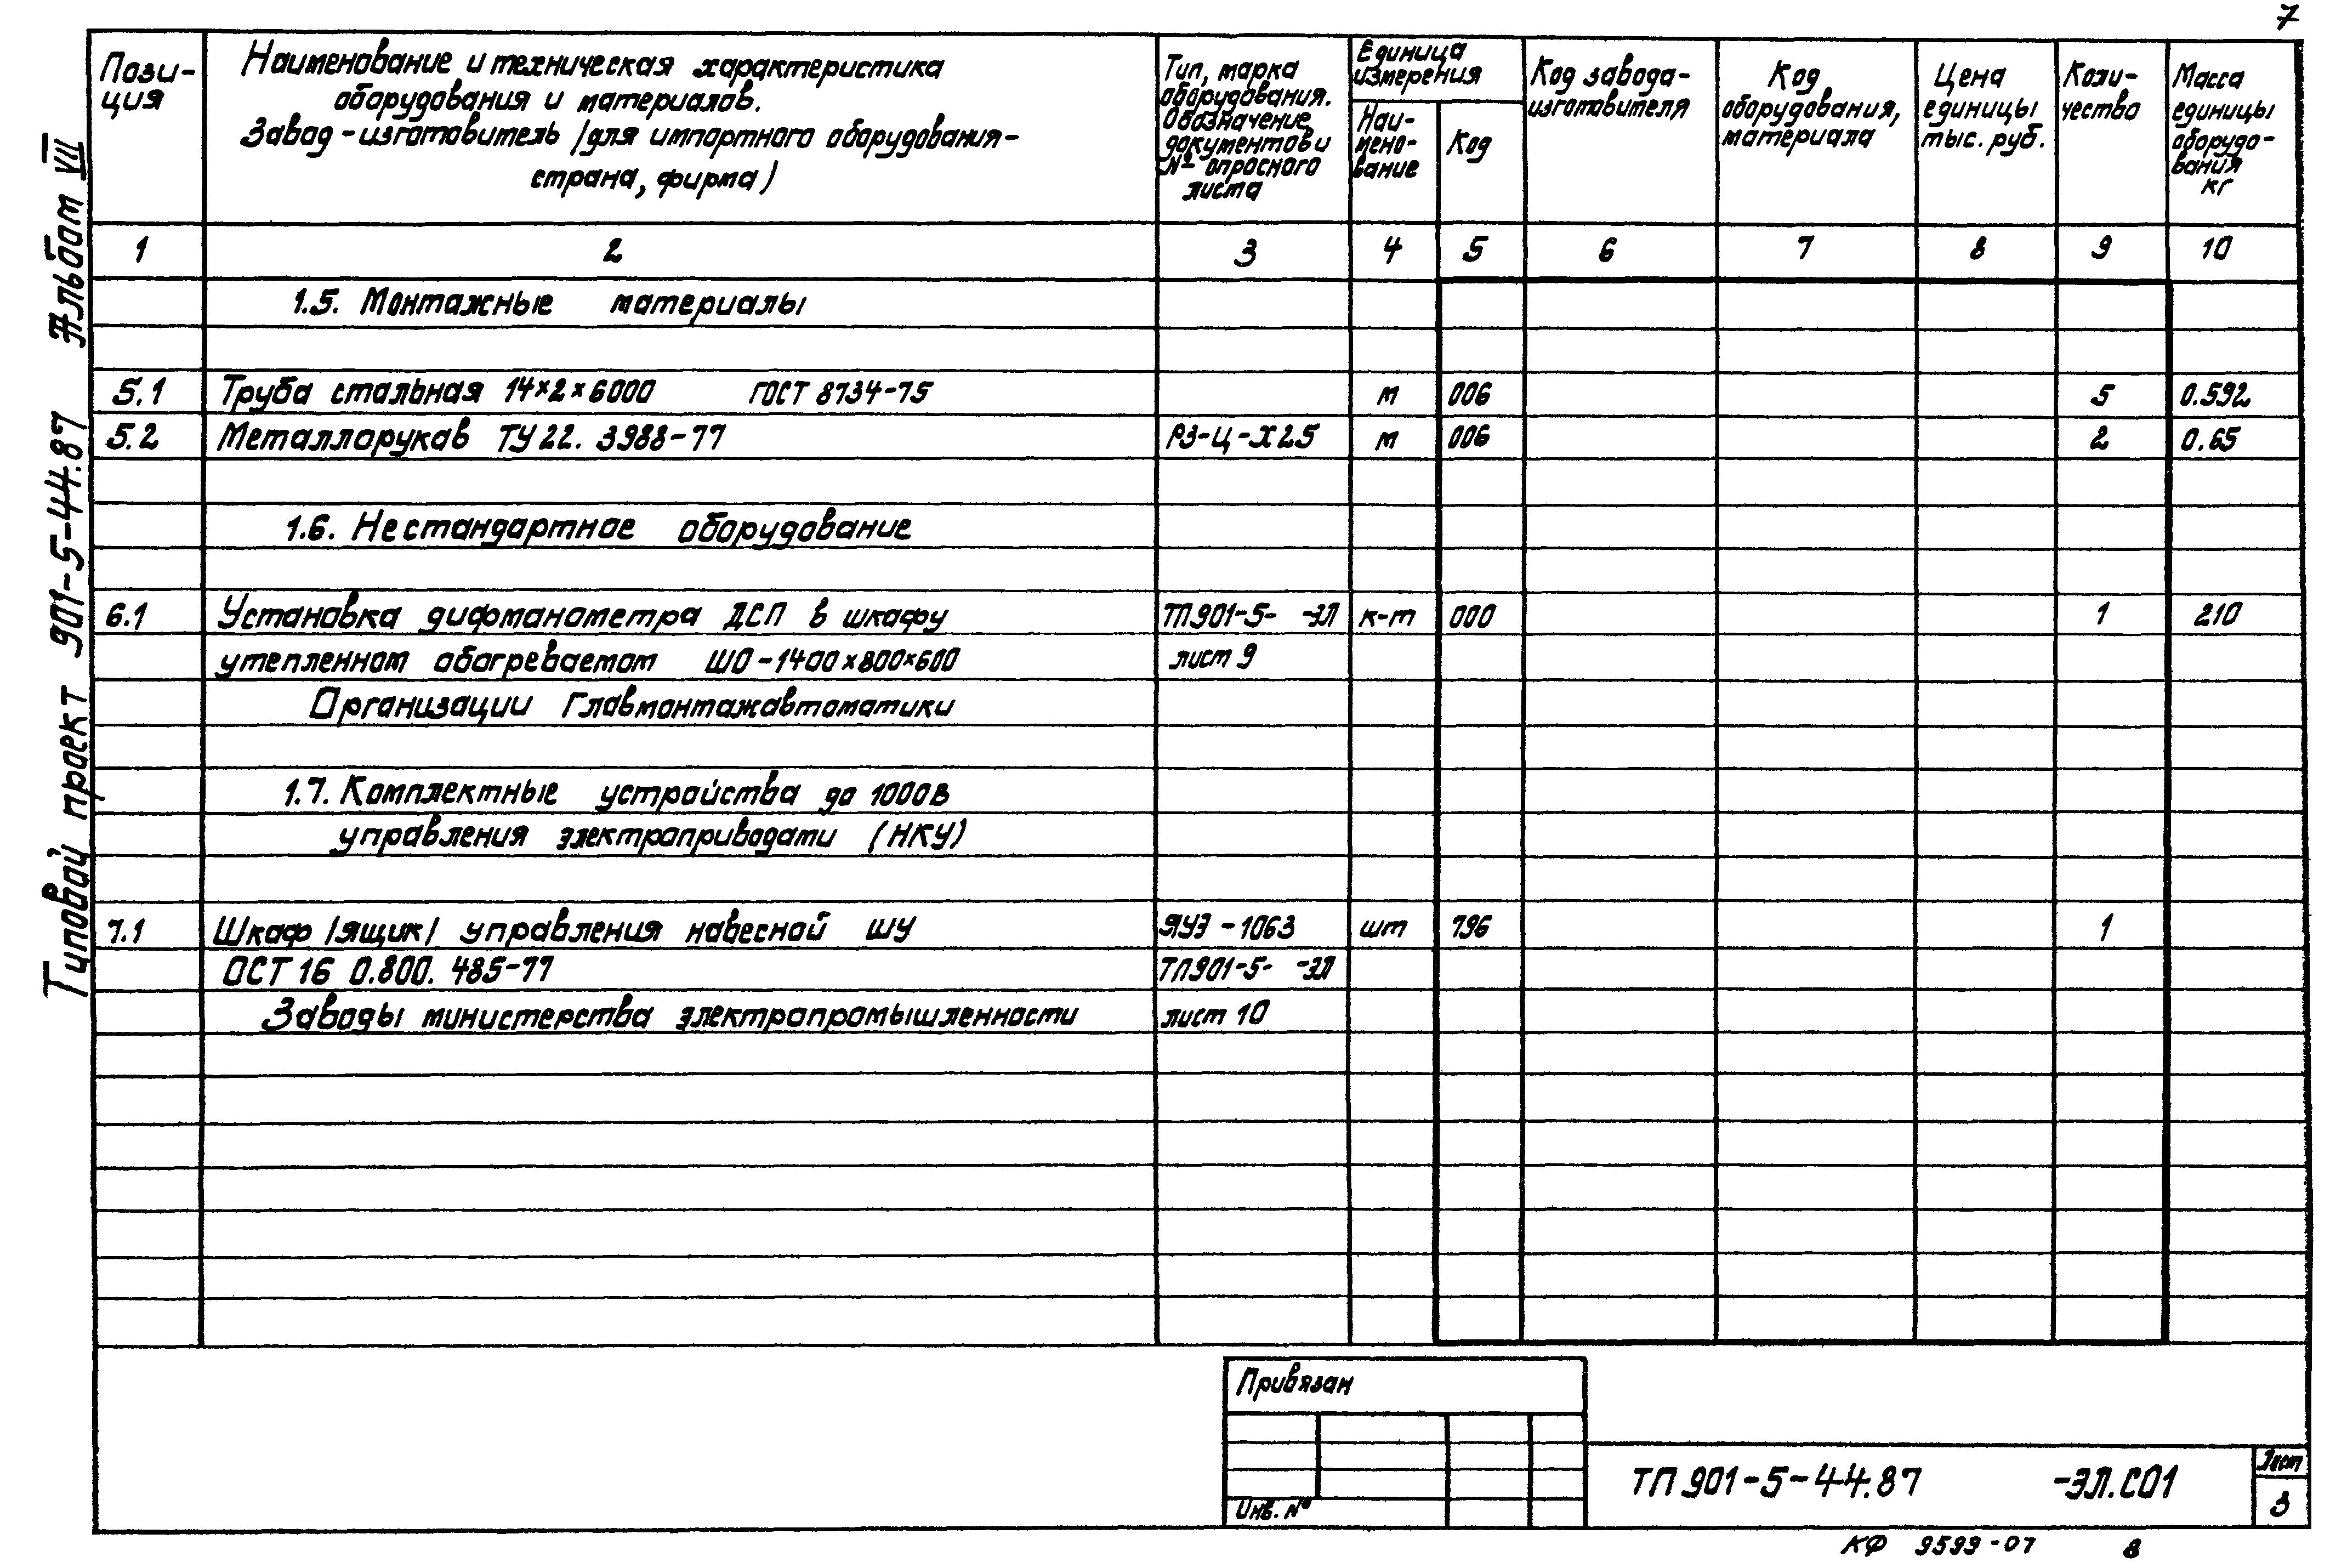 7
Типовой проект 901-5-44.87 Альбом VII
Пози-
ция
Наименование и техническая характеристика
оборудования и материалов.
Завод-изготовитель /для импортного оборудования-
страна, фирма)
Тип, марка
оборудования.
Обозначение
документов и
№ опросного
листа
Единица
измерения
Наи-
мено-
вание
Код
Код завода-
изготовителя
Код
оборудования,
материала
Цена
единицы
тыс. руб.
Коли-
чество
Масса
единицы
оборудо-
вания
кг
1 2 3 4 5 6 7 8 9 10
1.5. Монтажные материалы
5.1 Труба стальная 14×2×6000 ГОСТ 8734-75 м 006 5 0.592
5.2 Металлорукав ТУ 22. 3988-77 РЗ-Ц-Х25 м 006 2 0.65
1.6. Нестандартное оборудование
6.1 Установка дифманометра ДСП в шкафу ТП901-5- -ЭЛ к-т 000 1 210
утепленном обогреваемом ШО-1400×800×600 лист 9
Организации Главмонтажавтоматики
1.7. Комплектные устройства до 1000В
управления электроприводами (НКУ)
7.1 Шкаф /ящик/ управления навесной ШУ ЯУЭ-1063 шт 796 1
ОСТ 16 0.800. 485-77 ТП901-5- -ЭЛ
Заводы министерства электропромышленности лист 10
Привязан
Инв. №
ТП 901-5-44.87 -ЭЛ.СО1
Лист
3
КФ 9599-07 8